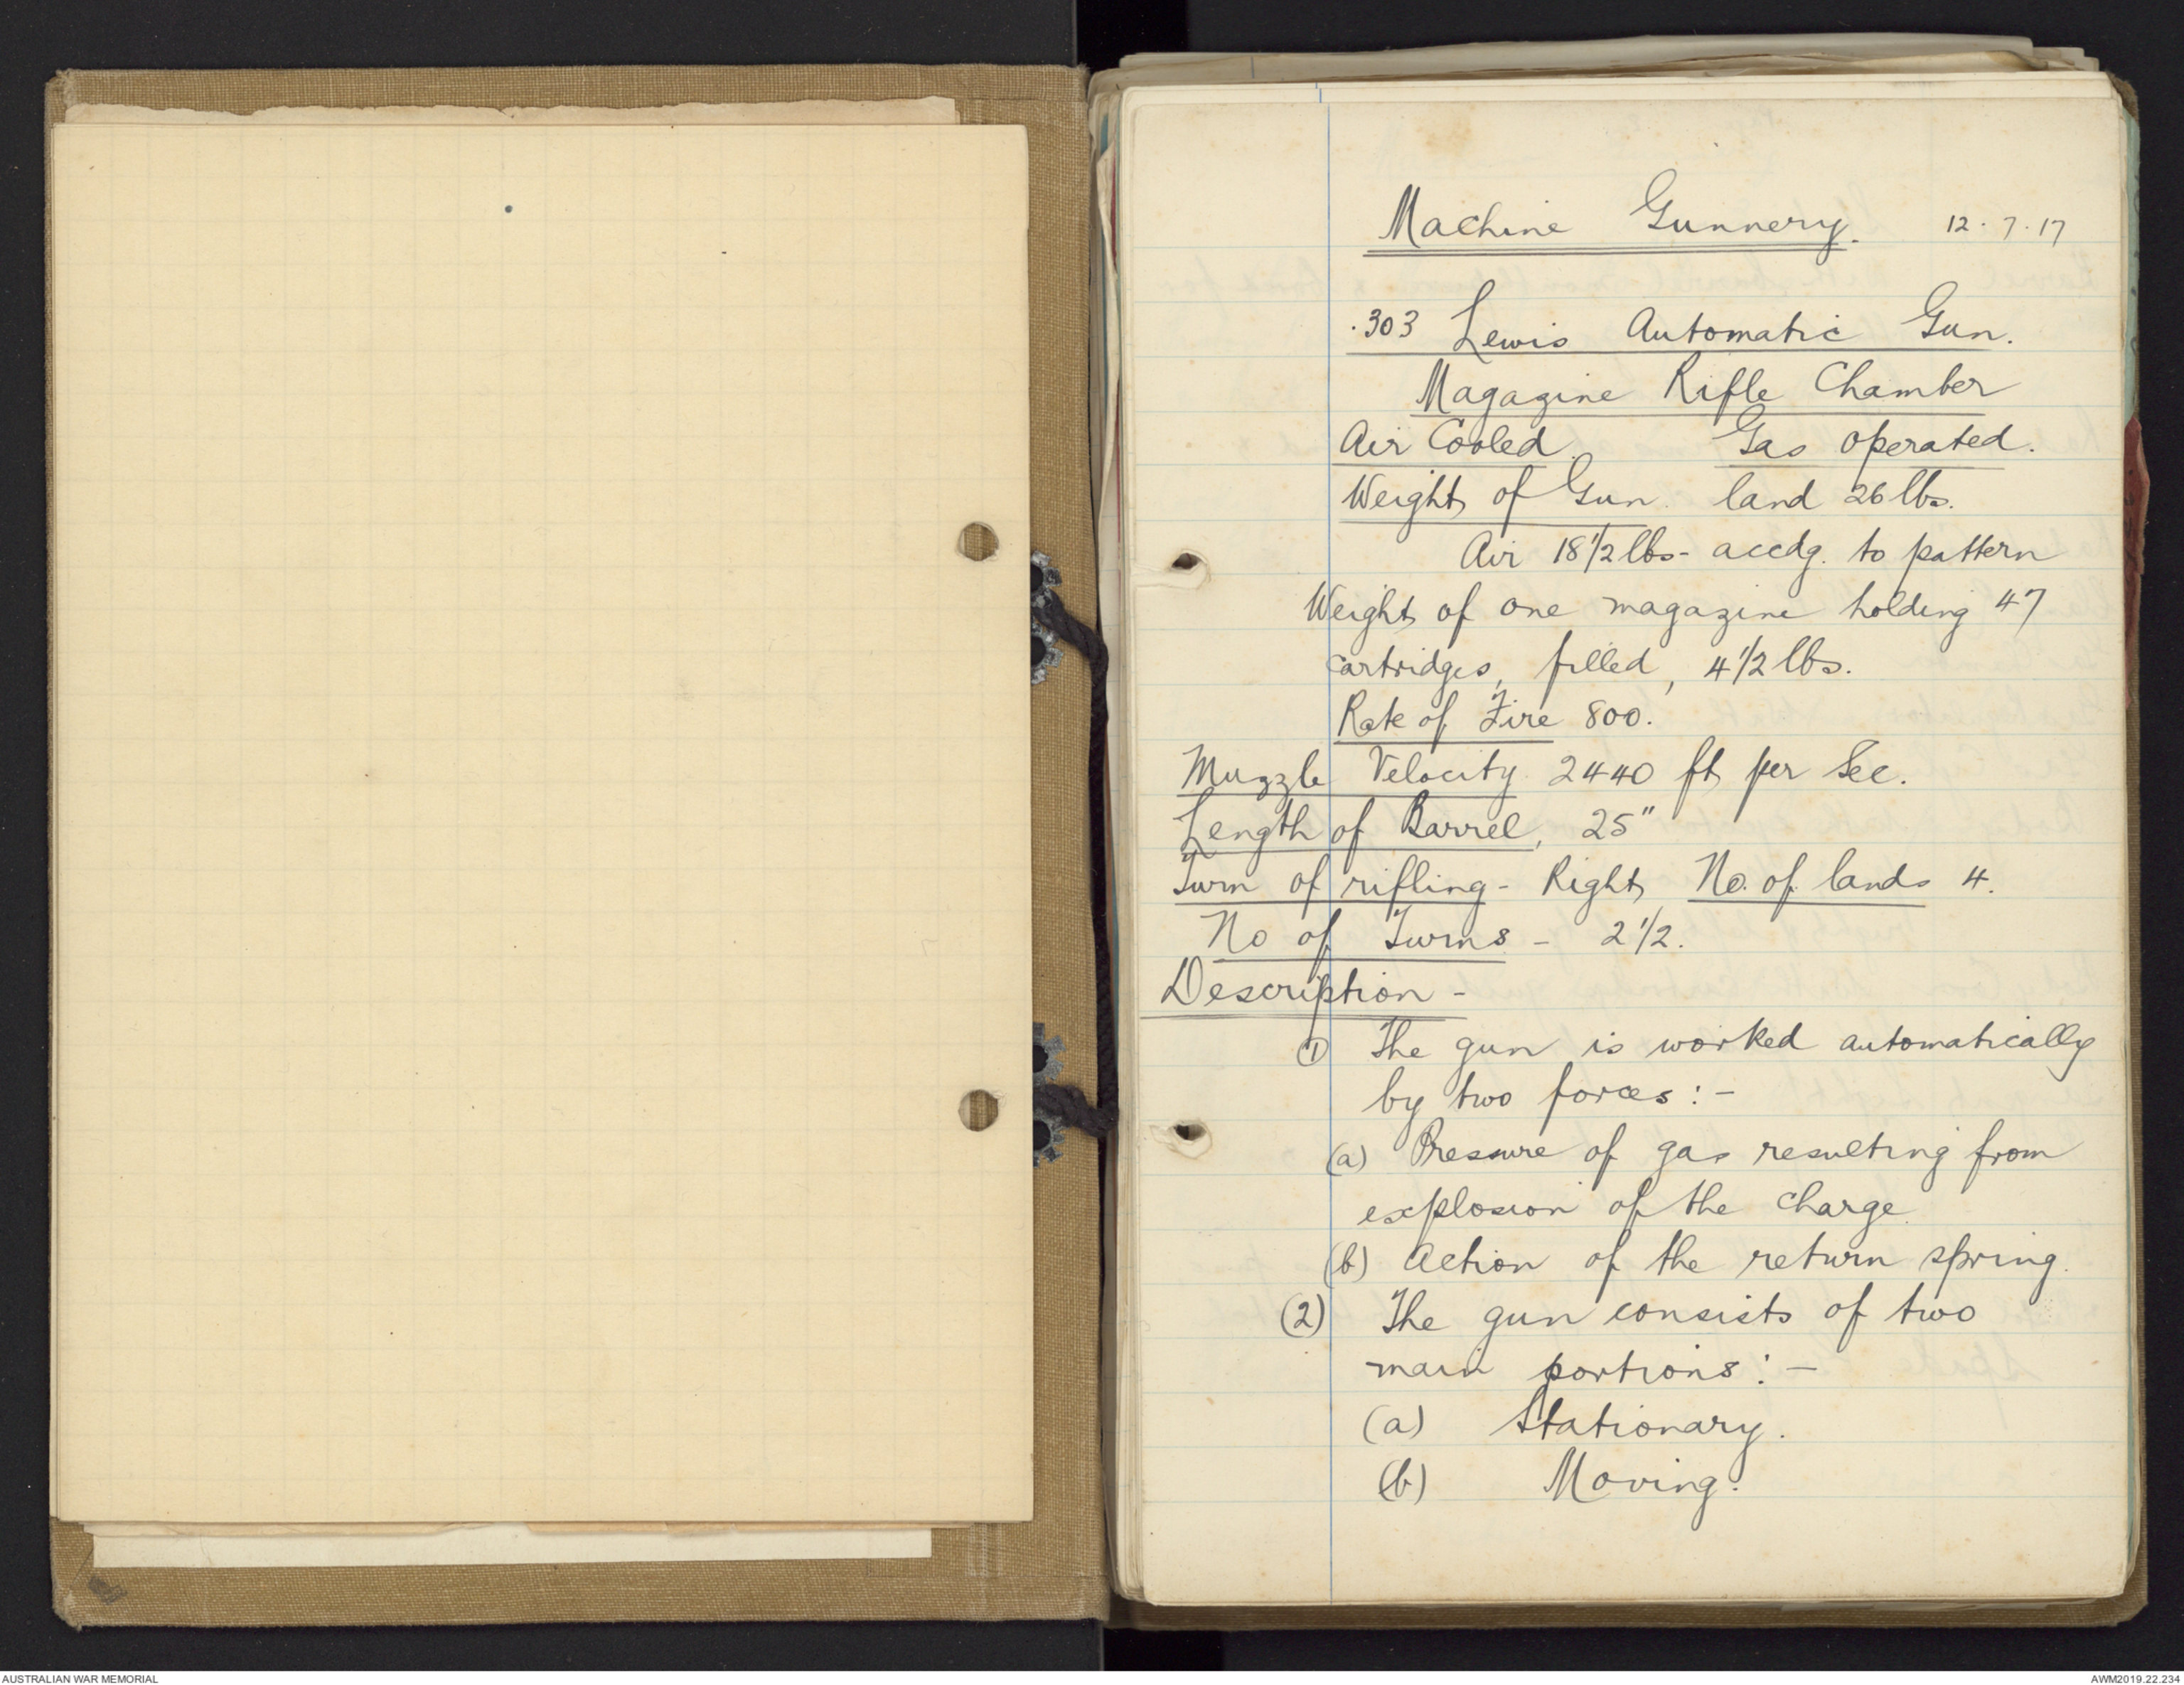 Machine Gunnery. 12.7.17
.303 Lewis Automatic Gun.
Magazine Rifle Chamber
Air Cooled. Gas operated.
Weight of Gun. land 26 lbs.
Air 18 1/2 lbs - accdg. to pattern
Weight of one magazine holding 47
cartridges, filled, 4 1/2 lbs.
Rate of Fire 800.
Muzzle Velocity 2440 ft per Sec.
Length of Barrel, 25"
Turn of rifling - Right No. of lands 4.
No of Turns - 2 1/2.
Description -
(1) The gun is worked automatically
by two forces :-
(a) Pressure of gas resulting from
explosion of the charge
(b) Action of the return spring.
(2) The gun consists of two
main portions :-
(a) Stationary.
(b) Moving.
AUSTRALIAN WAR MEMORIAL
AWM2019.22.234